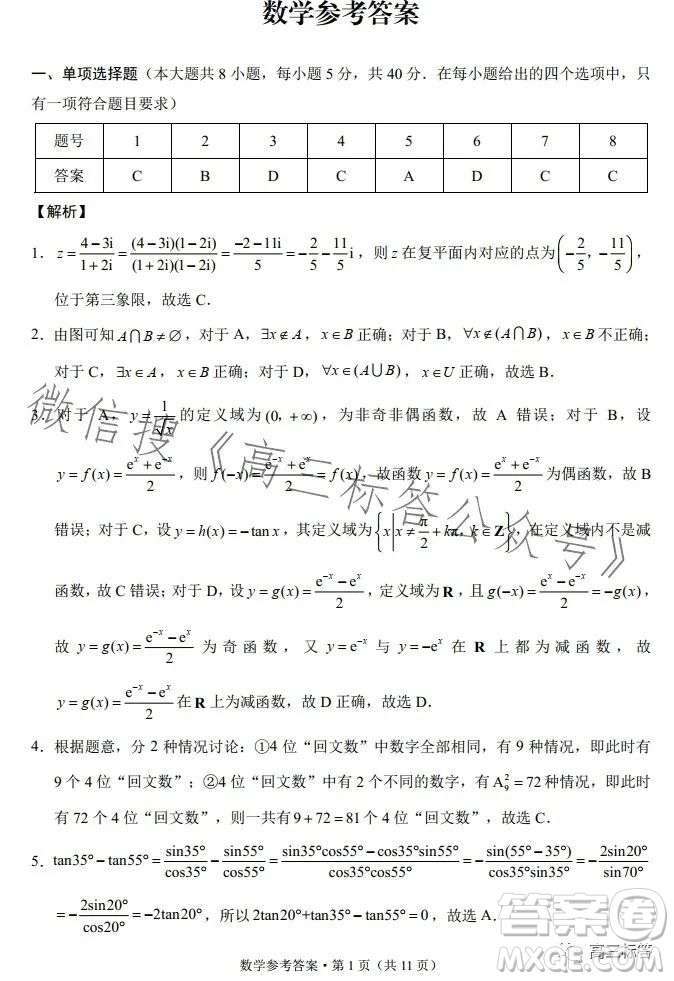 数学参考答案
一、单项选择题（本大题共 8 小题，每小题 5 分，共 40 分．在每小题给出的四个选项中，只
有一项符合题目要求）
题号 1 2 3 4 5 6 7 8
答案 C B D C A D C C
【解析】
1．z = (4−3i)/(1+2i) = (4−3i)(1−2i)/((1+2i)(1−2i)) = (−2−11i)/5 = −2/5 − 11/5 i，则 z 在复平面内对应的点为 (−2/5, −11/5)，
位于第三象限，故选 C．
2．由图可知 A∩B≠∅，对于 A，∃x∉A，x∈B 正确；对于 B，∀x∉(A∩B)，x∈B 不正确；
对于 C，∃x∈A，x∈B 正确；对于 D，∀x∈(A∪B)，x∈U 正确，故选 B．
3．对于 A，y = 1/√x 的定义域为 (0，+∞)，为非奇非偶函数，故 A 错误；对于 B，设
y = f(x) = (e^x + e^−x)/2，则 f(−x) = (e^−x + e^x)/2 = f(x)，故函数 y = f(x) = (e^x + e^−x)/2 为偶函数，故 B
错误；对于 C，设 y = h(x) = −tan x，其定义域为 {x | x ≠ π/2 + kπ, k∈Z}，在定义域内不是减
函数，故 C 错误；对于 D，设 y = g(x) = (e^−x − e^x)/2，定义域为 R，且 g(−x) = (e^x − e^−x)/2 = −g(x)，
故 y = g(x) = (e^−x − e^x)/2 为奇函数，又 y = e^−x 与 y = −e^x 在 R 上都为减函数，故
y = g(x) = (e^−x − e^x)/2 在 R 上为减函数，故 D 正确，故选 D．
4．根据题意，分 2 种情况讨论：①4 位“回文数”中数字全部相同，有 9 种情况，即此时有
9 个 4 位“回文数”；②4 位“回文数”中有 2 个不同的数字，有 A₉² = 72 种情况，即此时
有 72 个 4 位“回文数”，故一共有 9 + 72 = 81 个 4 位“回文数”，故选 C．
5．tan35° − tan55° = sin35°/cos35° − sin55°/cos55° = (sin35°cos55° − cos35°sin55°)/(cos35°cos55°) = −sin(55° − 35°)/(cos35°sin35°) = −2sin20°/sin70°
= −2sin20°/cos20° = −2tan20°，所以 2tan20°+tan35° − tan55° = 0，故选 A．
数学参考答案·第 1 页（共 11 页）
微信搜《高三标答公众号》
答案圈
高三标答